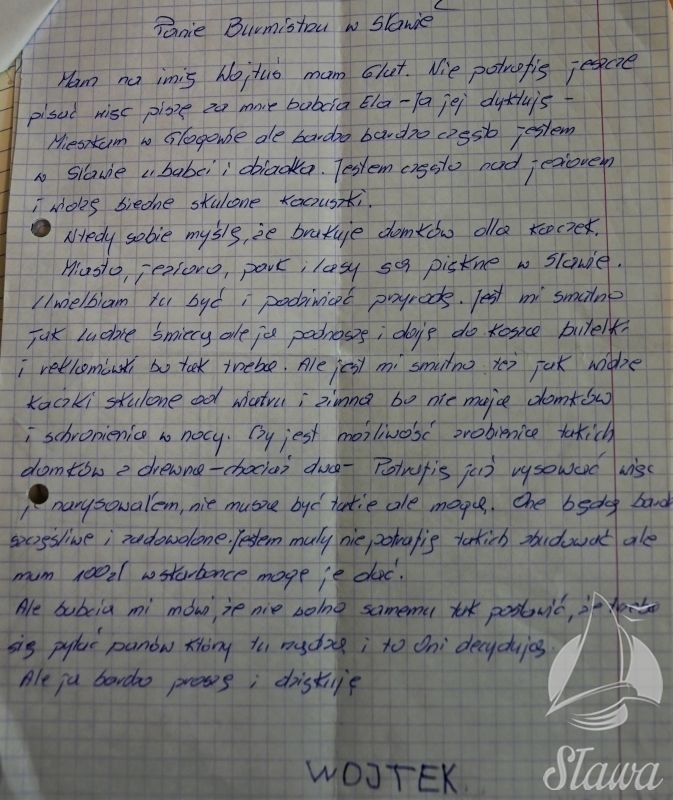 Panie Burmistrzu w Sławie
Mam na imię Wojtuś mam 6lat. Nie potrafię jeszcze
pisać więc piszę za mnie babcia Ela - Ja jej dyktuję -
Mieszkam w Głogowie ale bardzo bardzo często jestem
w Sławie u babci i dziadka. Jestem często nad jeziorem
i widzę biedne skulone kaczuszki.
Wtedy sobie myślę, że brakuje domków dla kaczek.
Miasto, jezioro, park i lasy są piękne w Sławie.
Uwielbiam tu być i podziwiać przyrodę. Jest mi smutno
jak ludzie śmiecą ale ja podnoszę i daję do kosza butelki
i reklamówki bo tak trzeba. Ale jest mi smutno też jak widzę
kaczki skulone od wiatru i zimna bo nie mają domków
i schronienia w nocy. Czy jest możliwość zrobienia takich
domków z drewna - chociaż dwa - Potrafię już rysować więc
je narysowałem, nie muszą być takie ale mogą. One będą bardz
szczęśliwe i zadowolone. Jestem mały nie potrafię takich zbudować ale
mam 100zł w skarbonce mogę je dać.
Ale babcia mi mówi, że nie wolno samemu tak postawić, że trzeba
się pytać panów który tu rządzą i to Oni decydują.
Ale ja bardzo proszę i dziękuję
WOJTEK.
Sława